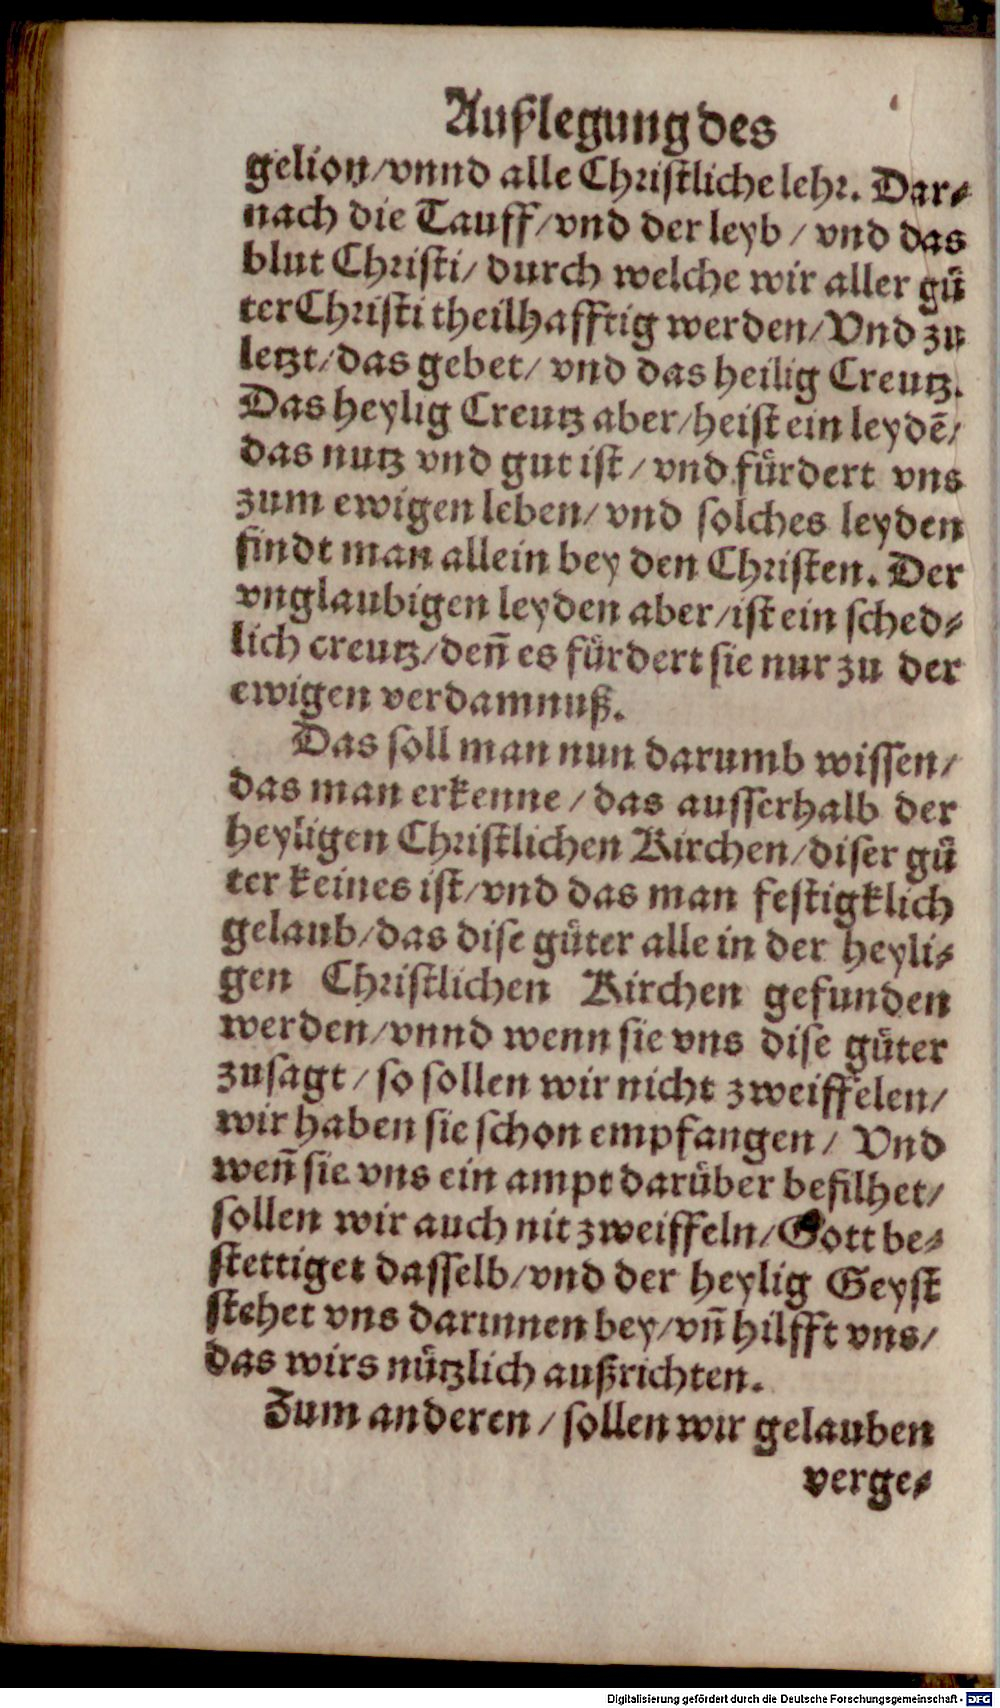 Außlegung des
gelion/vnnd alle Christliche lehr. Dar⸗
nach die Tauff/vnd der leyb / vnd das
blut Christi/ durch welche wir aller guͤ
ter Christi theilhafftig werden/Vnd zu
letzt/das gebet/ vnd das heilig Creutz.
Das heylig Creutz aber/heist ein leydē/
das nutz vnd gut ist / vnd fuͤrdert vns
zum ewigen leben/ vnd solches leyden
findt man allein bey den Christen. Der
vnglaubigen leyden aber/ist ein sched⸗
lich creutz/den̄ es fuͤrdert sie nur zu der
ewigen verdamnuß.
Das soll man nun darumb wissen/
das man erkenne / das ausserhalb der
heyligen Christlichen Kirchen/diser guͤ
ter keines ist/vnd das man festigklich
gelaub/das dise guͤter alle in der heyli⸗
gen Christlichen Kirchen gefunden
werden/vnnd wenn sie vns dise guͤter
zusagt / so sollen wir nicht zweiffelen/
wir haben sie schon empfangen / Vnd
wen̄ sie vns ein ampt daruͤber befilhet/
sollen wir auch nit zweiffeln/Gott be⸗
stettiget dasselb/vnd der heylig Geyst
stehet vns darinnen bey/vn̄ hilfft vns/
das wirs nuͤtzlich außrichten.
Zum anderen / sollen wir gelauben
verge⸗
Digitalisierung gefördert durch die Deutsche Forschungsgemeinschaft - DFG